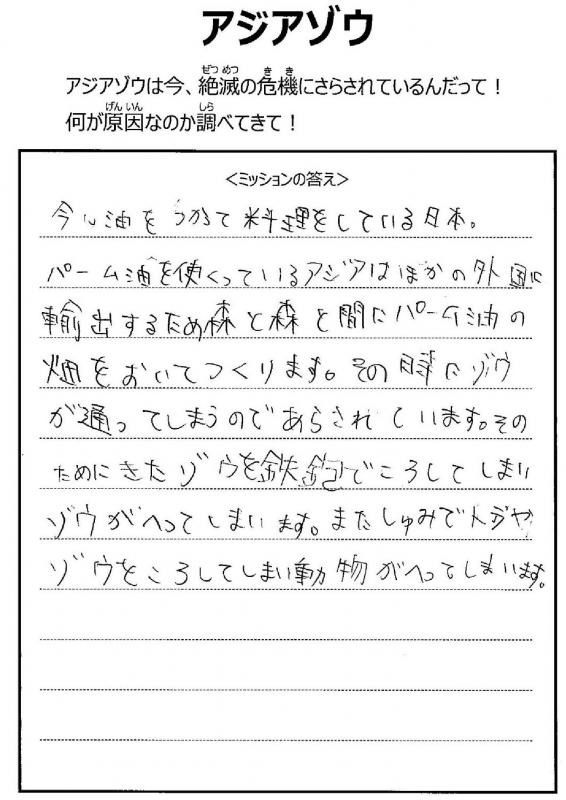 アジアゾウ
アジアゾウは今、絶滅の危機にさらされているんだって！
何が原因なのか調べてきて！
<ミッションの答え>
今ム油をつかて料理をしている日本。
パーム油を使くっているアジアはほかの外国に
輸出するため森と森と間にパーム油の
畑をおいてつくります。その時にゾウ
が通ってしまうのであらされています。その
ためにきたゾウを鉄鉋でころしてしまい
ゾウがへってしまいます。またしゅみでトラや
ゾウをころしてしまい動物がへってしまいます。